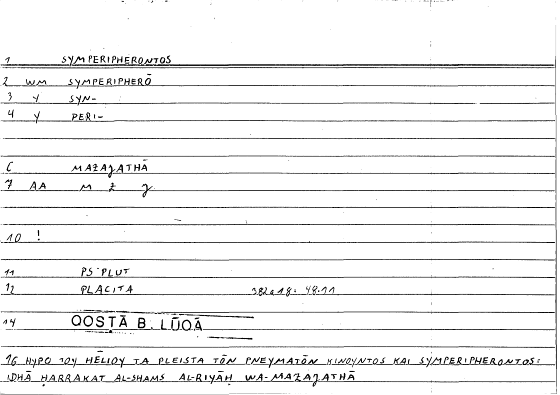 1 SYMPERIPHERONTOS
2 WM SYMPERIPHERŌ
3 Y SYN-
4 Y PERI-
6 MAZAǧATHĀ
7 AA M Z ǧ
10 !
11 PS-PLUT
12 PLACITA 382a18: 48.11
14 QOSṬĀ B. LŪQĀ
16 HYPO TOY HĒLIOY TA PLEISTA TŌN PNEYMATŌN KINOYNTOS KAI SYMPERIPHERONTOS:
IDHĀ ḤARRAKAT AL-SHAMS AL-RIYĀḤ WA-MAZAǧATHĀ